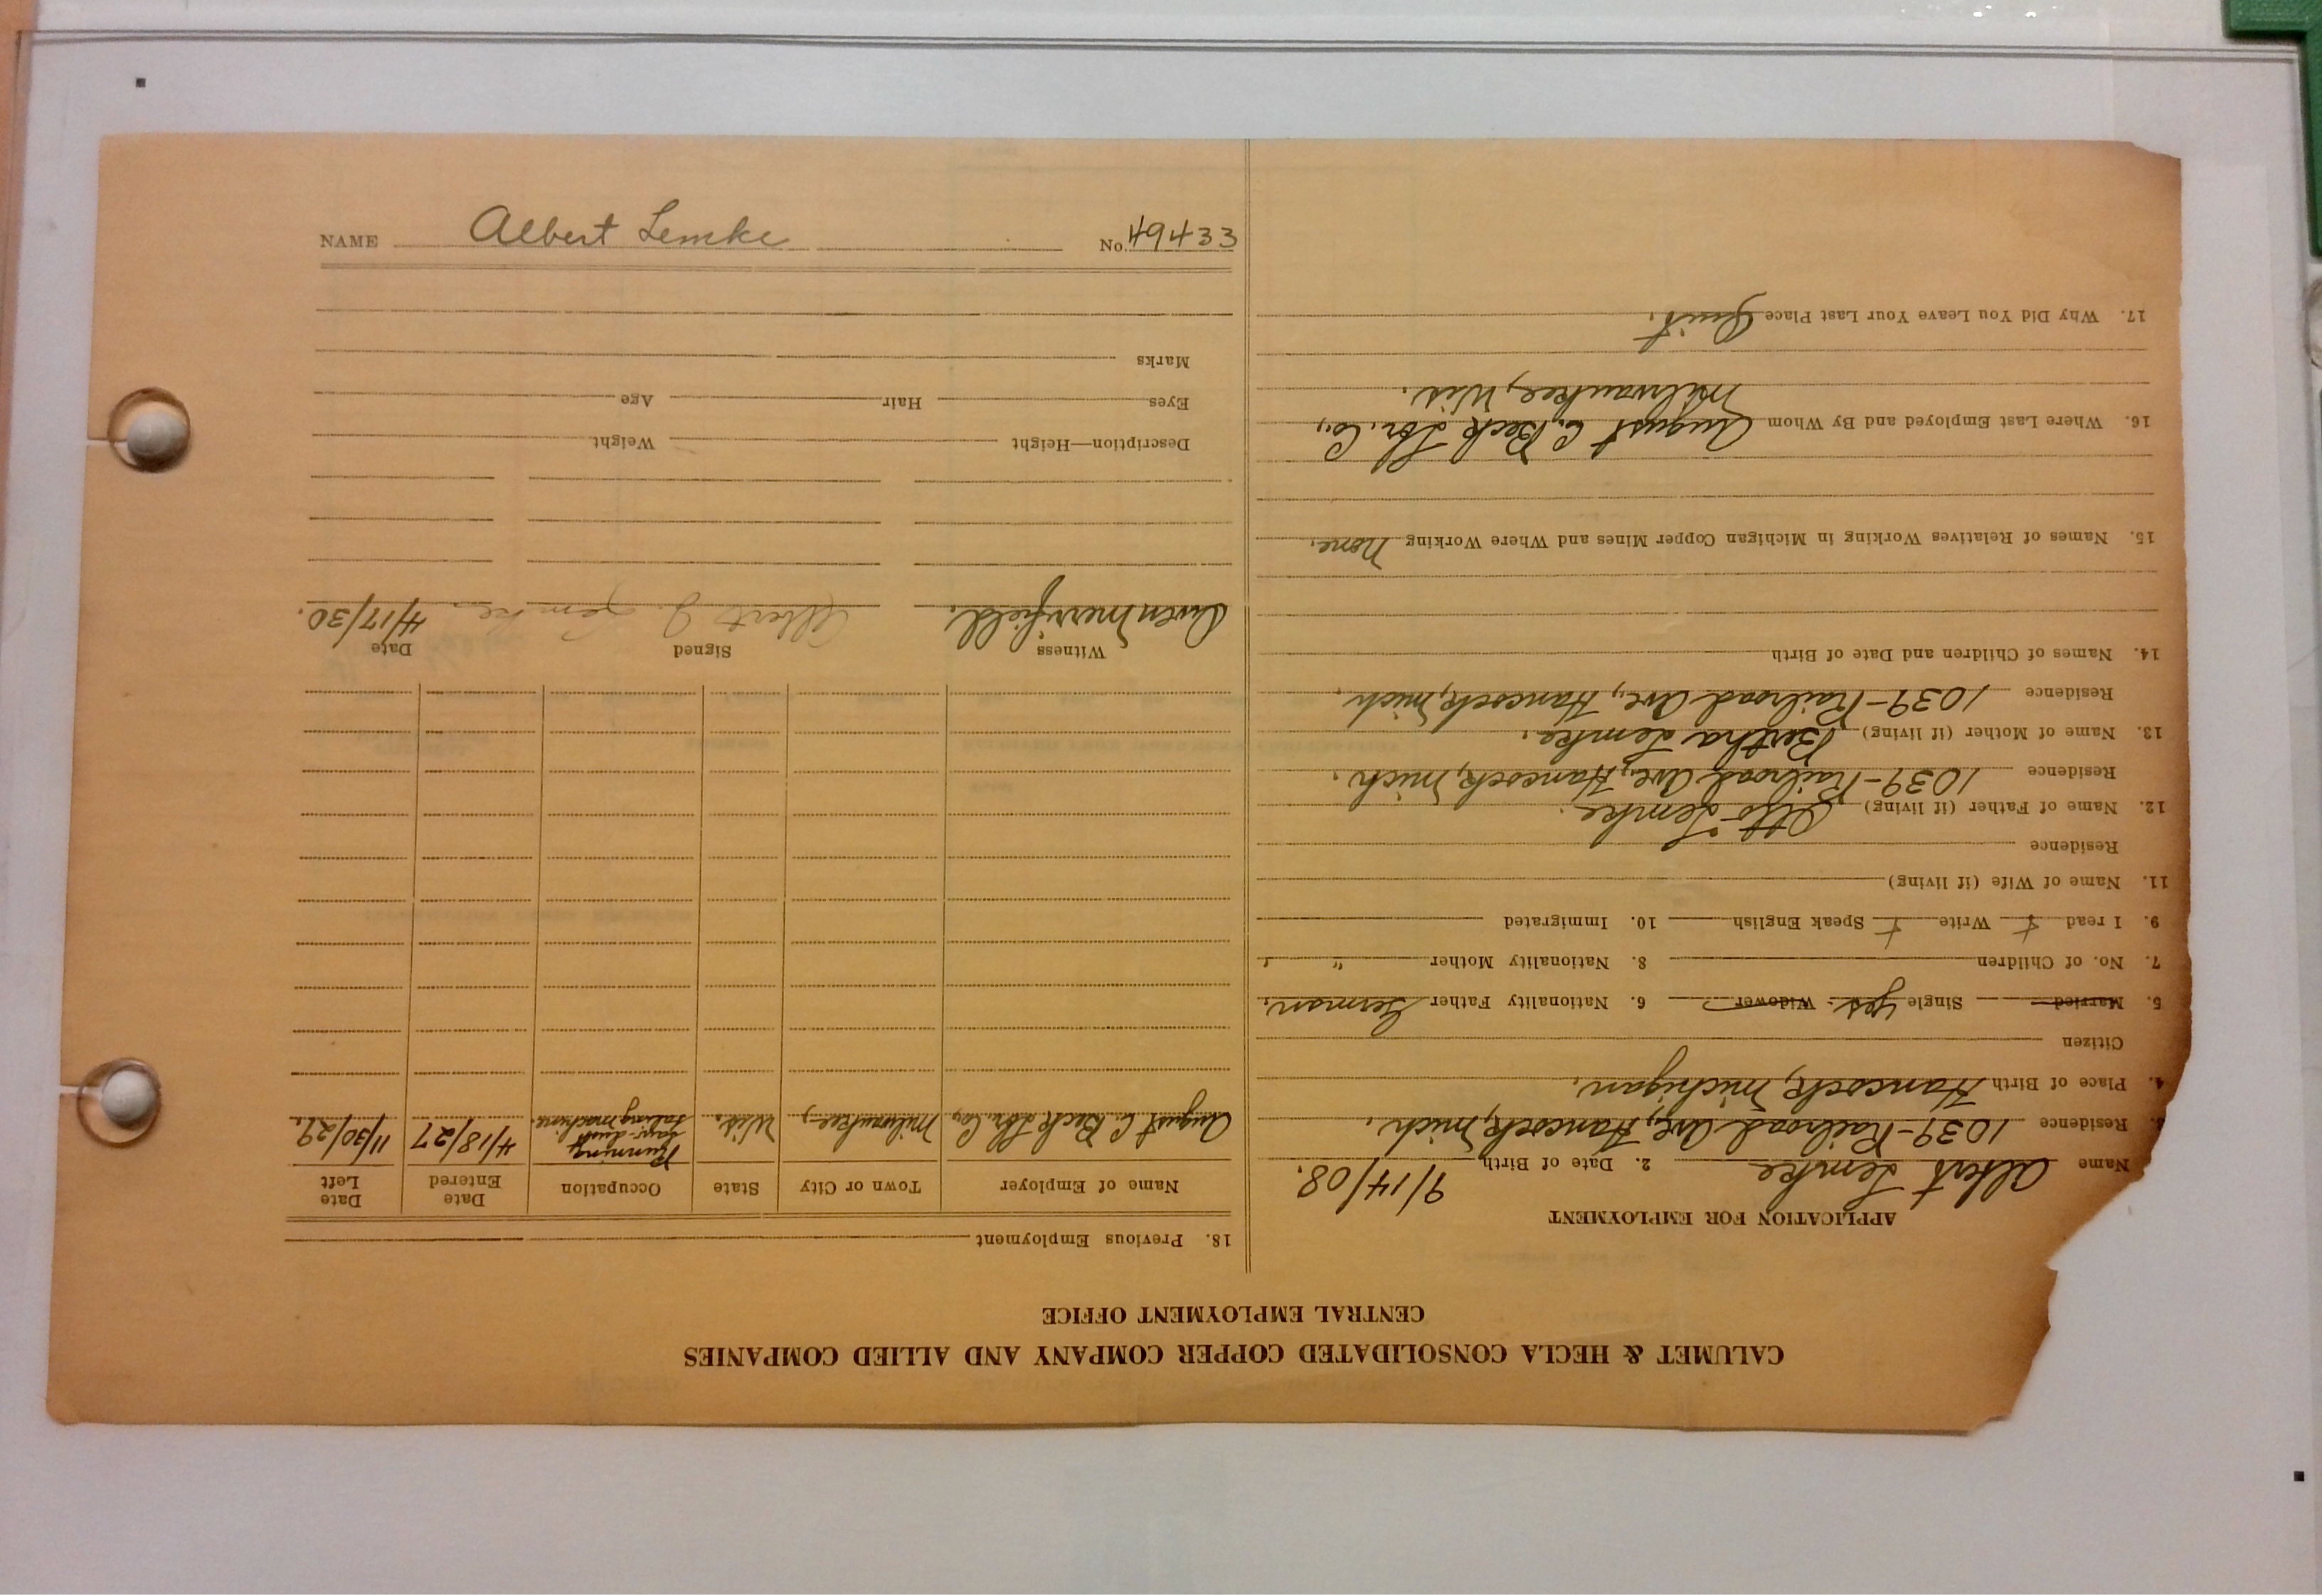 NAME Albert Lemke No. 49433
CALUMET & HECLA CONSOLIDATED COPPER COMPANY AND ALLIED COMPANIES
CENTRAL EMPLOYMENT OFFICE
APPLICATION FOR EMPLOYMENT
Name Albert Lemke 2. Date of Birth 9/14/08.
3. Residence 1039-Railroad Ave., Hancock, Mich.
4. Place of Birth Hancock, Michigan.
Citizen
5. Married Single yes. Widower 6. Nationality Father German.
7. No. of Children 8. Nationality Mother " "
9. I read + Write + Speak English 10. Immigrated
11. Name of Wife (if living)
Residence
12. Name of Father (if living) Otto Lemke.
Residence 1039-Railroad Ave., Hancock, Mich.
13. Name of Mother (if living) Bertha Lemke.
Residence 1039-Railroad Ave., Hancock, Mich.
14. Names of Children and Date of Birth
15. Names of Relatives Working in Michigan Copper Mines and Where Working None.
16. Where Last Employed and By Whom August C. Beck Lbr. Co.,
Milwaukee, Wis.
17. Why Did You Leave Your Last Place Quit.
18. Previous Employment
Name of Employer Town or City State Occupation Date Entered Date Left
August C. Beck Lbr. Co., Milwaukee, Wis. Running 4/18/27 11/30/29.
saw-dust
machine.
Witness Signed Date
Owen Merrifield. Albert J. Lemke. 4/17/30.
Description—Height Weight
Eyes Hair Age
Marks